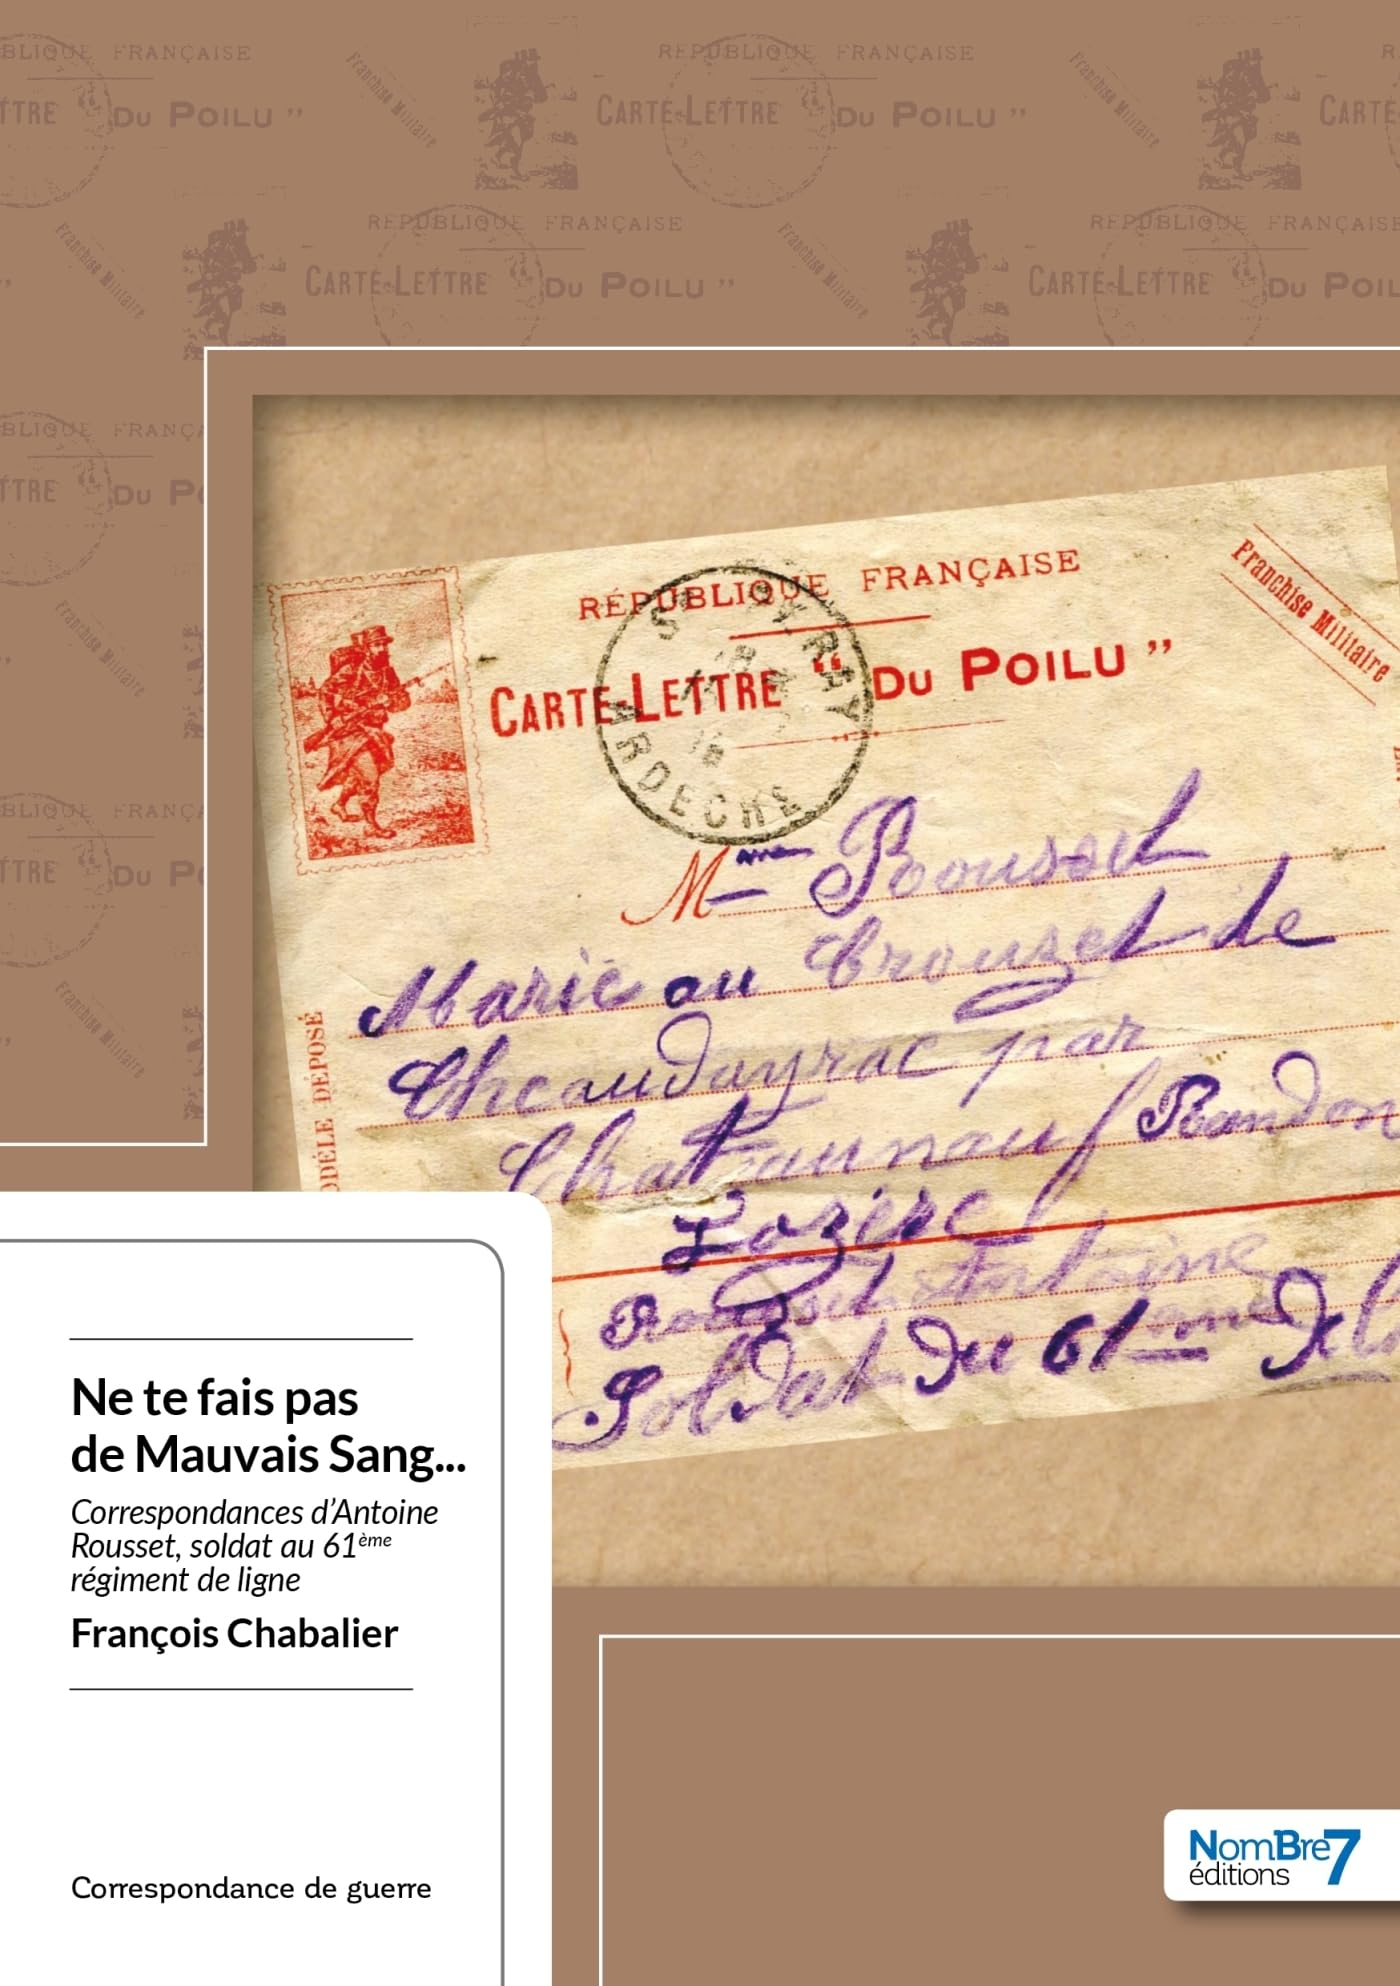 RÉPUBLIQUE FRANÇAISE
CARTE-LETTRE “ DU POILU ”
Franchise Militaire
ARDECHE
MODÈLE DÉPOSÉ
Mme Rousset
Marie au Crouzet de
Cheaudayrac par
Chateauneuf Randon
Lozère
Rousset Antoine
Soldat du 61me de
Ne te fais pas
de Mauvais Sang...
Correspondances d’Antoine
Rousset, soldat au 61ème
régiment de ligne
François Chabalier
Correspondance de guerre
NomBre7
éditions